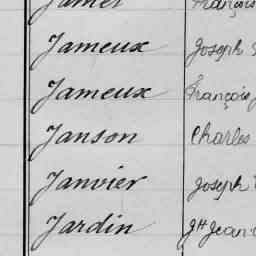 Jamet François
Jameux Joseph
Jameux François
Janson Charles
Janvier Joseph
Jardin Jean